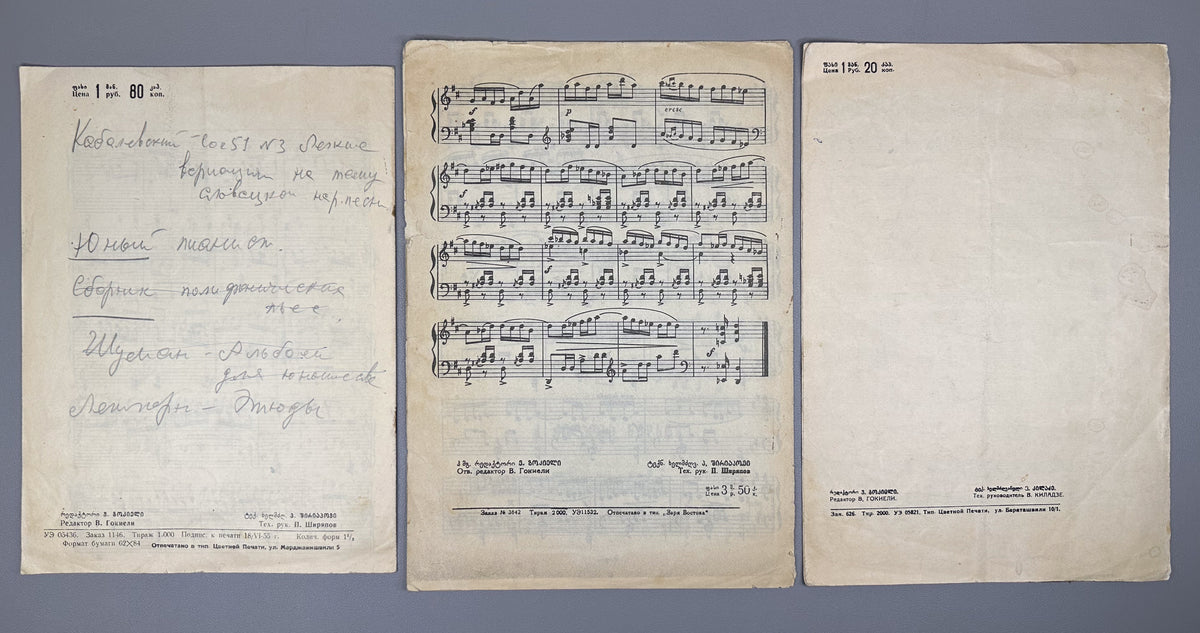 ფასი 1 მან. 80 კაპ.
Цена 1 руб. 80 коп.
Кабалевский Соч 51 №3 Легкие
вариации на тему
словацкой нар. песни
Юный пианист.
Сборник полифонических
пьес
Шуман - Альбом
для юношества
Лемперн - Этюды
რედაქტორი ვ. გოკიელი
Редактор В. Гокиели
ტექ. ხელმძღ. პ. შირიაპოვი
Тех. рук. П. Ширяпов
УЭ 05436. Заказ 1146. Тираж 1.000 Подпис. к печати 18/VI-55 г. Колич. форм 1½
Формат бумаги 62×84 Отпечатано в тип. Цветной Печати, ул. Марджанишвили 5
f
p
cresc.
f
f
პ/მგ. რედაქტორი ვ. გოკიელი
Отв. редактор В. Гокиели
ტექნ. ხელმძღვ. პ. შირიაპოვი
Тех. рук. П. Ширяпов
ფასი 3 მ. 50 კ.
Цена 3 р. 50 к.
Заказ № 3042 Тираж 2000. УЭ11532. Отпечатано в тип. „Заря Востока"
ფასი 1 მან. 20 კაპ.
Цена 1 Руб. 20 коп.
რედაქტორი ვ. გოკიელი.
Редактор В. ГОКИЕЛИ.
ტექ. ხელმძღვანელი ვ. კილაძე.
Тех. руководитель В. КИЛАДЗЕ.
Зак. 626. Тир. 2000. УЭ 05821. Тип. Цветной Печати, ул. Бараташвили 10/1.